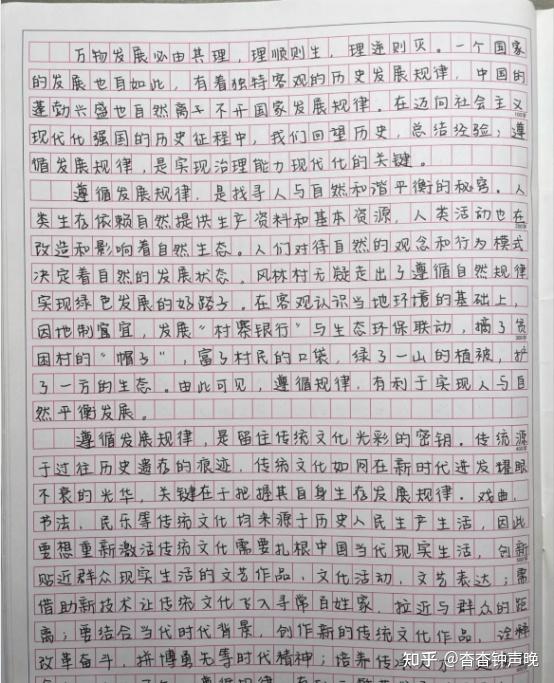 万物发展必由其理，理顺则生，理逆则灭。一个国家
的发展也自如此，有着独特客观的历史发展规律，中国的
蓬勃兴盛也自然离不开国家发展规律。在迈向社会主义
现代化强国的历史征程中，我们回望历史，总结经验；遵
循发展规律，是实现治理能力现代化的关键。
遵循发展规律，是找寻人与自然和谐平衡的秘密。人
类生存依赖自然提供生产资料和基本资源，人类活动也在
改造和影响着自然生态。人们对待自然的观念和行为模式
决定着自然的发展状态。风林村无疑走出了遵循自然规律
实现绿色发展的好路子。在客观认识当地环境的基础上，
因地制宜，发展“村寨银行”与生态环保联动，摘了贫
困村的“帽子”，富了村民的口袋，绿了一山的植被，扩
了一方的生态。由此可见，遵循规律，有利于实现人与自
然平衡发展。
遵循发展规律，是留住传统文化光彩的密钥。传统源
于过往历史遗存的痕迹，传统文化如何在新时代迸发耀眼
不衰的光华，关键在于把握其自身生存发展规律。戏曲、
书法、民乐等传统文化均来源于历史人民生产生活，因此
要想重新激活传统文化需要扎根中国当代现实生活，创新
贴近群众现实生活的文艺作品、文化活动、文艺表达；需
借助新技术让传统文化飞入寻常百姓家，拉近与群众的距
离；要结合当代时代背景，创作新的传统文化作品，诠释
改革奋斗、拼搏勇无等时代精神；培养传
知乎 @杳杳钟声晚